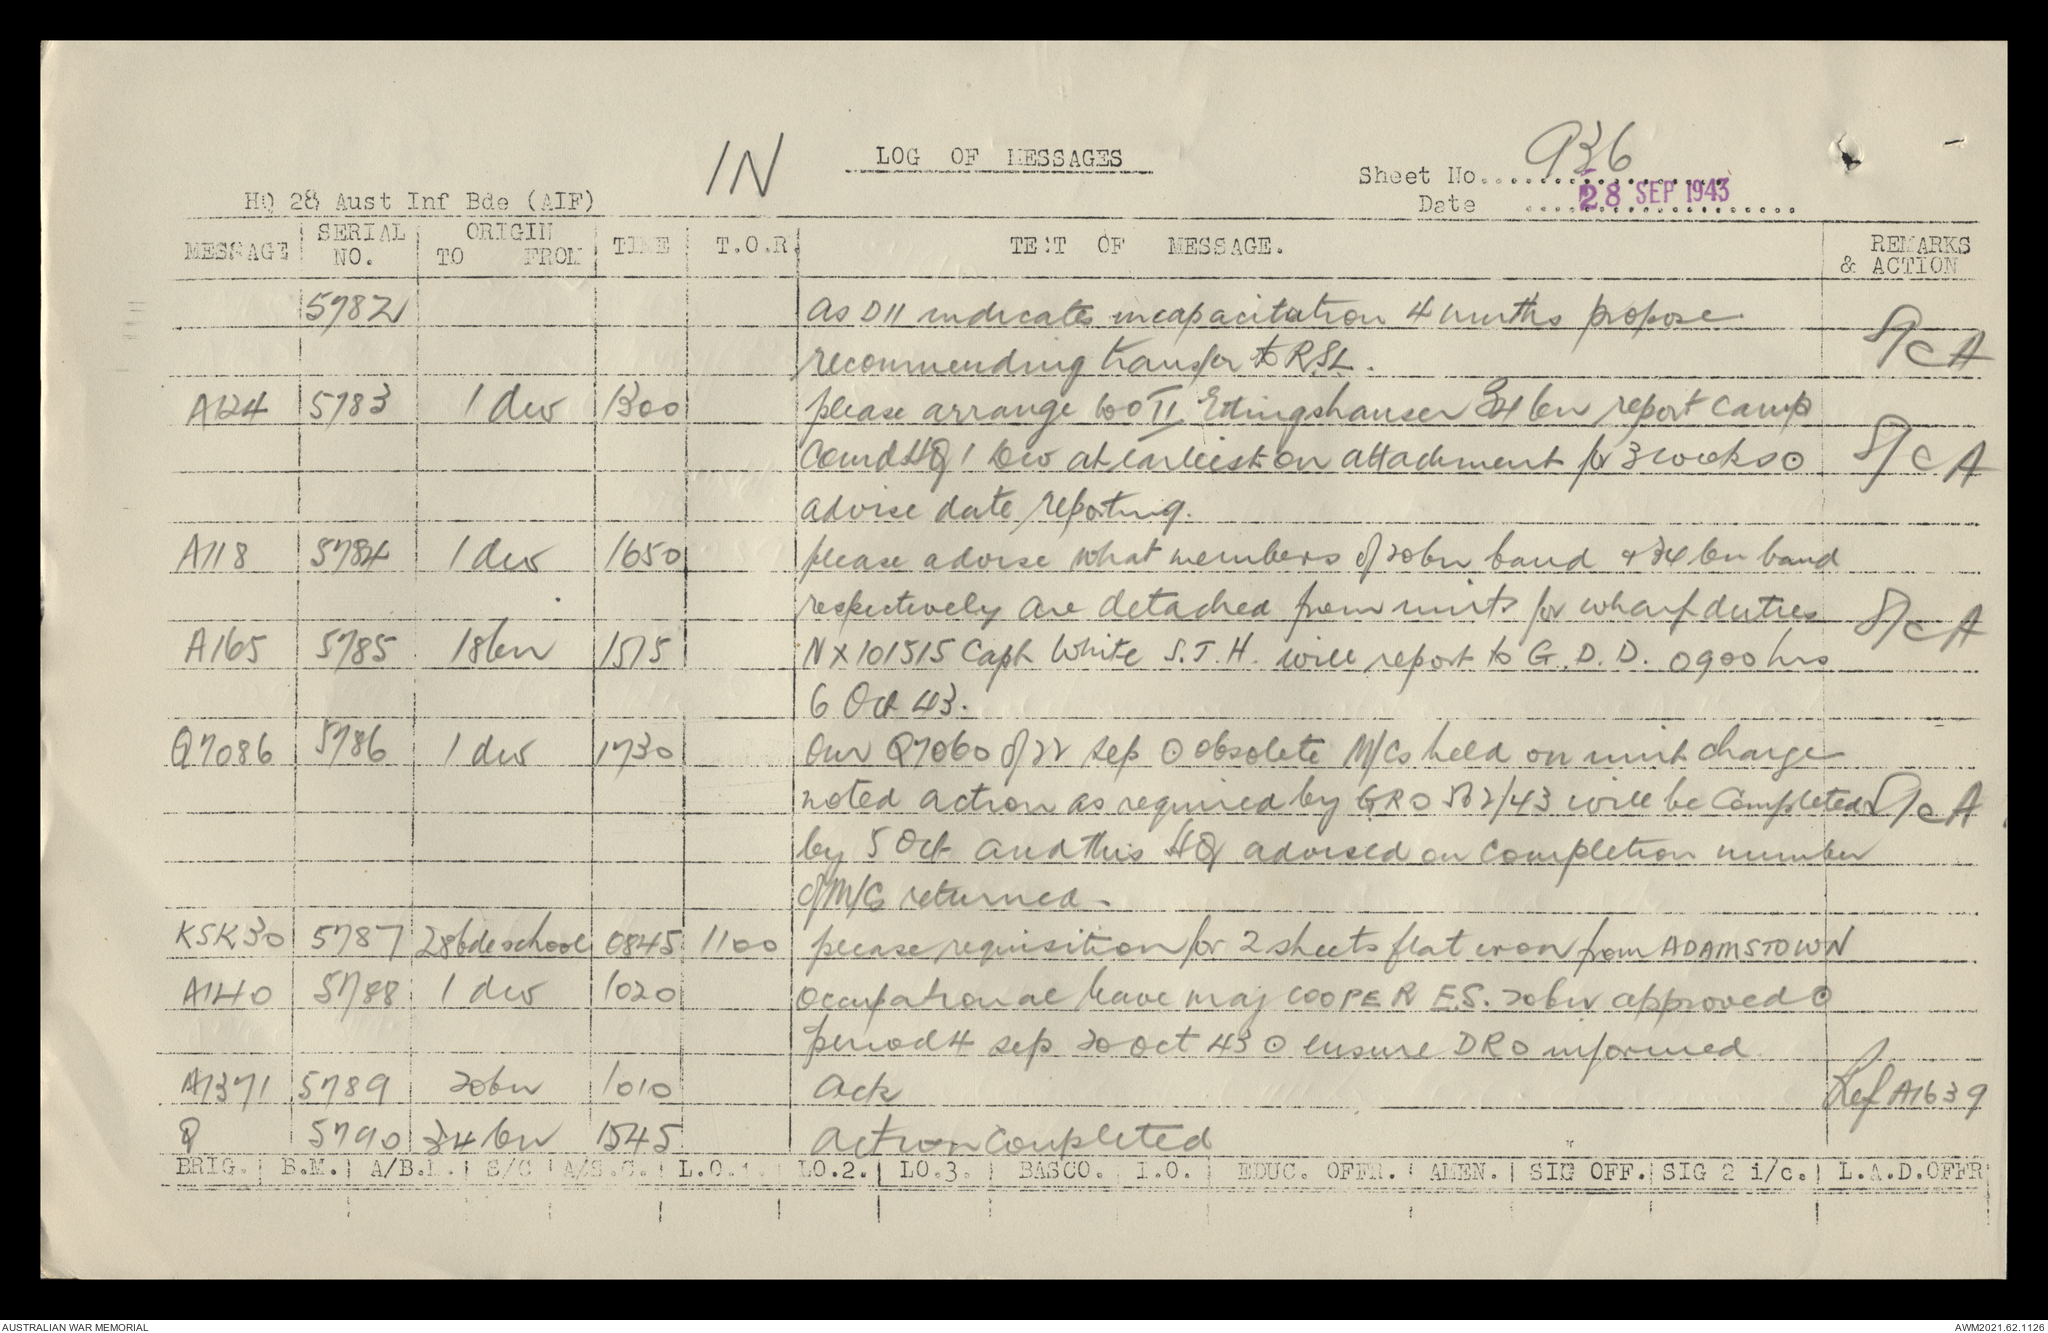 IN
LOG OF MESSAGES
Sheet No. 936
HQ 28 Aust Inf Bde (AIF)
Date 28 SEP 1943
MESSAGE SERIAL NO. ORIGIN TO FROM TIME T.O.R. TEXT OF MESSAGE. REMARKS & ACTION
5782 as D11 indicates incapacitation 4 months propose
recommending transfer to RSL. S/CA
A124 5783 1 div 1300 please arrange WO II Ettingshausen 34 bn report camp
Comd HQ 1 Div at earliest on attachment for 3 weeks ⊙ S/CA
advise date reporting.
A118 5784 1 div 1650 please advise what members of 20bn band & 34 bn band
respectively are detached from units for wharf duties S/CA
A165 5785 18bn 1515 NX101515 Capt White S.T.H. will report to G.D.D. 0900hrs
6 Oct 43.
Q7086 5786 1 div 1730 Our Q7060 of 22 Sep ⊙ obsolete M/Cs held on unit charge
noted action as required by GRO 562/43 will be Completed S/CA
by 5 Oct and this HQ advised on completion number
of M/Cs returned.
KSK30 5787 28bde school 0845 1100 please requisition for 2 sheets flat iron from ADAMSTOWN
A140 5788 1 div 1020 Occupational leave maj COOPER E.S. 20bn approved ⊙
period 4 Sep 20 Oct 43 ⊙ ensure DRO informed.
A1371 5789 20bn 1010 Ack Ref A1639
Q 5790 34 bn 1545 action completed
BRIG. B.M. A/B.M. S/C A/S.C. L.O.1. LO.2. LO.3. BASCO. I.O. EDUC. OFFR. AMEN. SIG OFF. SIG 2 i/c. L.A.D.OFFR
AUSTRALIAN WAR MEMORIAL AWM2021.62.1126